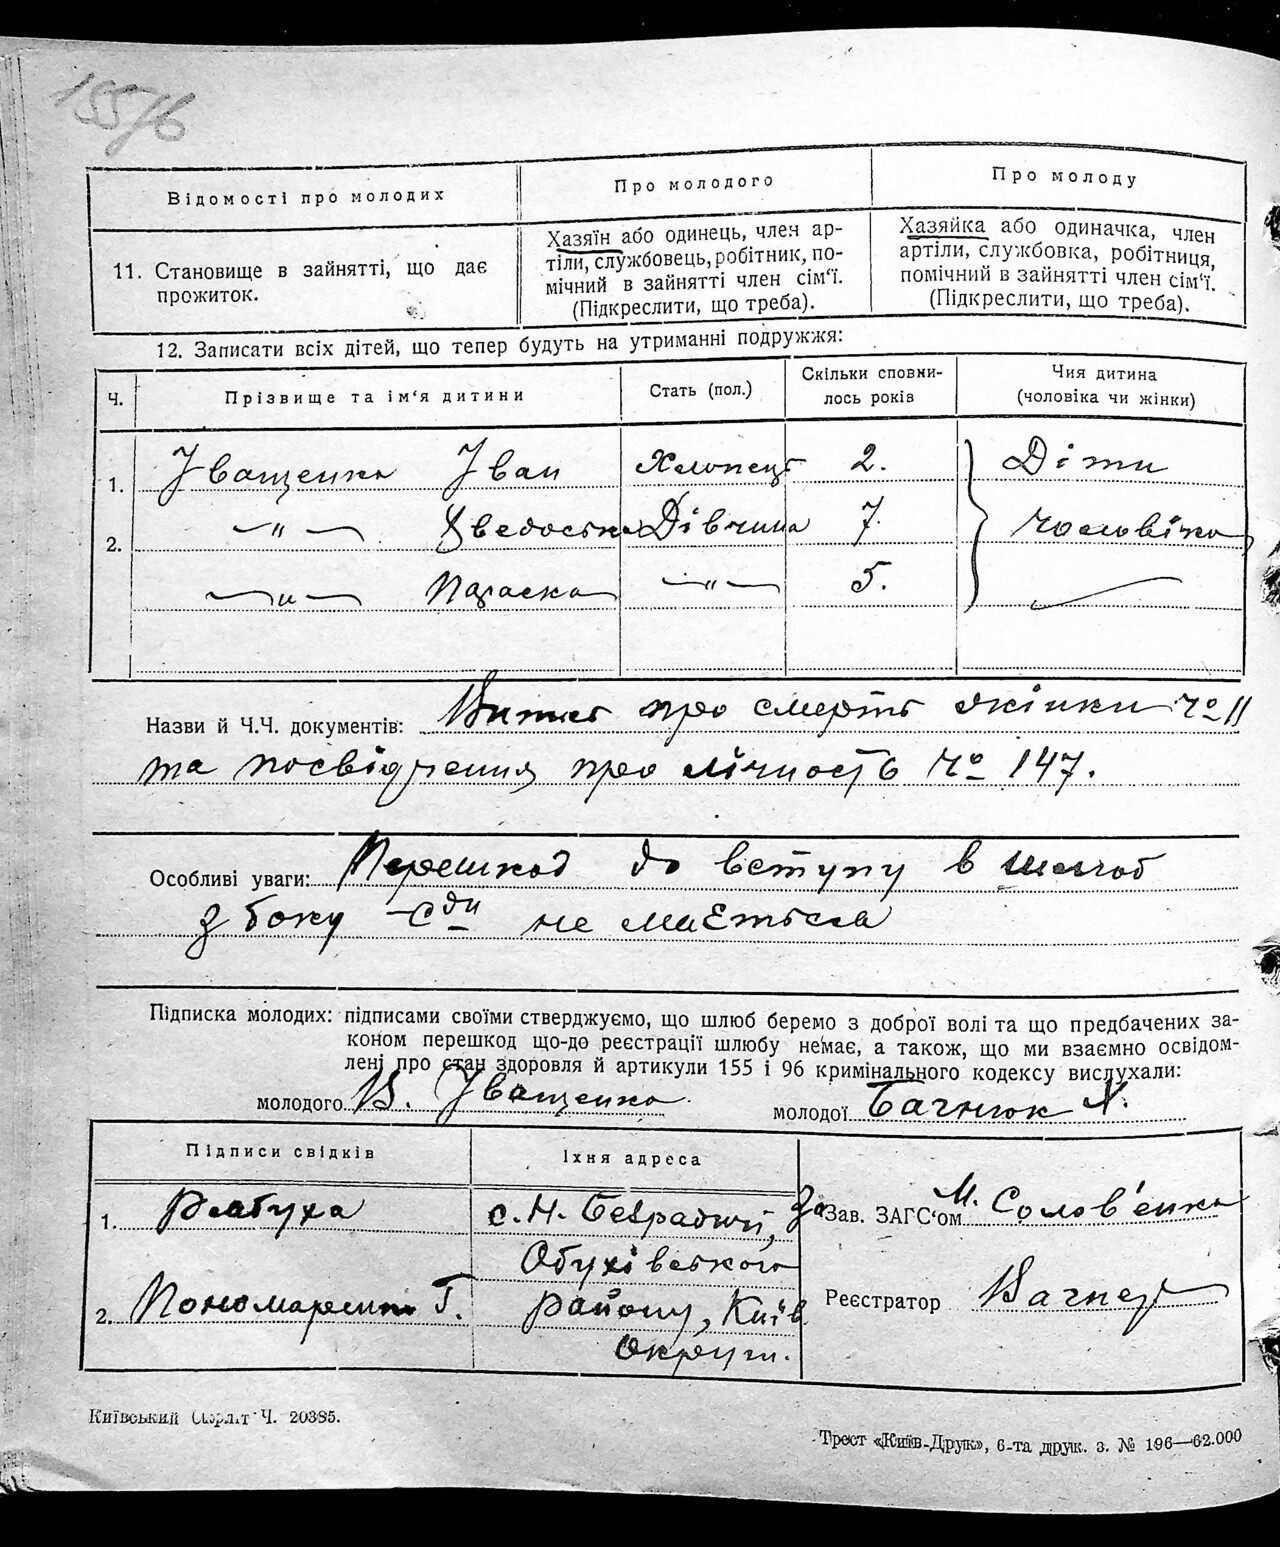 155/6
Відомості про молодих
Про молодого
Про молоду
11. Становище в зайнятті, що дає
прожиток.
Хазяїн або одинець, член ар-
тіли, службовець, робітник, по-
мічний в зайнятті член сім'ї.
(Підкреслити, що треба).
Хазяйка або одиначка, член
артіли, службовка, робітниця,
помічний в зайнятті член сім'ї.
(Підкреслити, що треба).
12. Записати всіх дітей, що тепер будуть на утриманні подружжя:
Ч. Прізвище та ім'я дитини
Стать (пол.)
Скільки сповни-
лось років
Чия дитина
(чоловіка чи жінки)
1. Іващенко Іван Хлопець 2. Діти
2. —〃— Явдоська Дівчина 7. Чоловіка
—〃— Параска —〃— 5.
Назви й Ч.Ч. документів: Витяг про смерть жінки Чо 11
та посвідчення про лічность Чо 147.
Особливі уваги: Перешкод до вступу в шлюб
з боку не маеться
Підписка молодих: підписами своїми стверджуємо, що шлюб беремо з доброї волі та що предбачених за-
коном перешкод що-до реєстрації шлюбу немає, а також, що ми взаємно освідом-
лені про стан здоровля й артикули 155 і 96 кримінального кодексу вислухали:
молодого В. Іващенко молодої Бачнюк Х.
Підписи свідків
Їхня адреса
1. Рябуха с. Н. Безрадичі,
Обухівського
2. Пономаренко Г. району, Київ
округи.
За Зав. ЗАГС'ом М. Солов'енко
Реєстратор Вагнер
Київський Ч. 20385.
Трест «Київ-Друк», 6-та друк. з. № 196—62.000